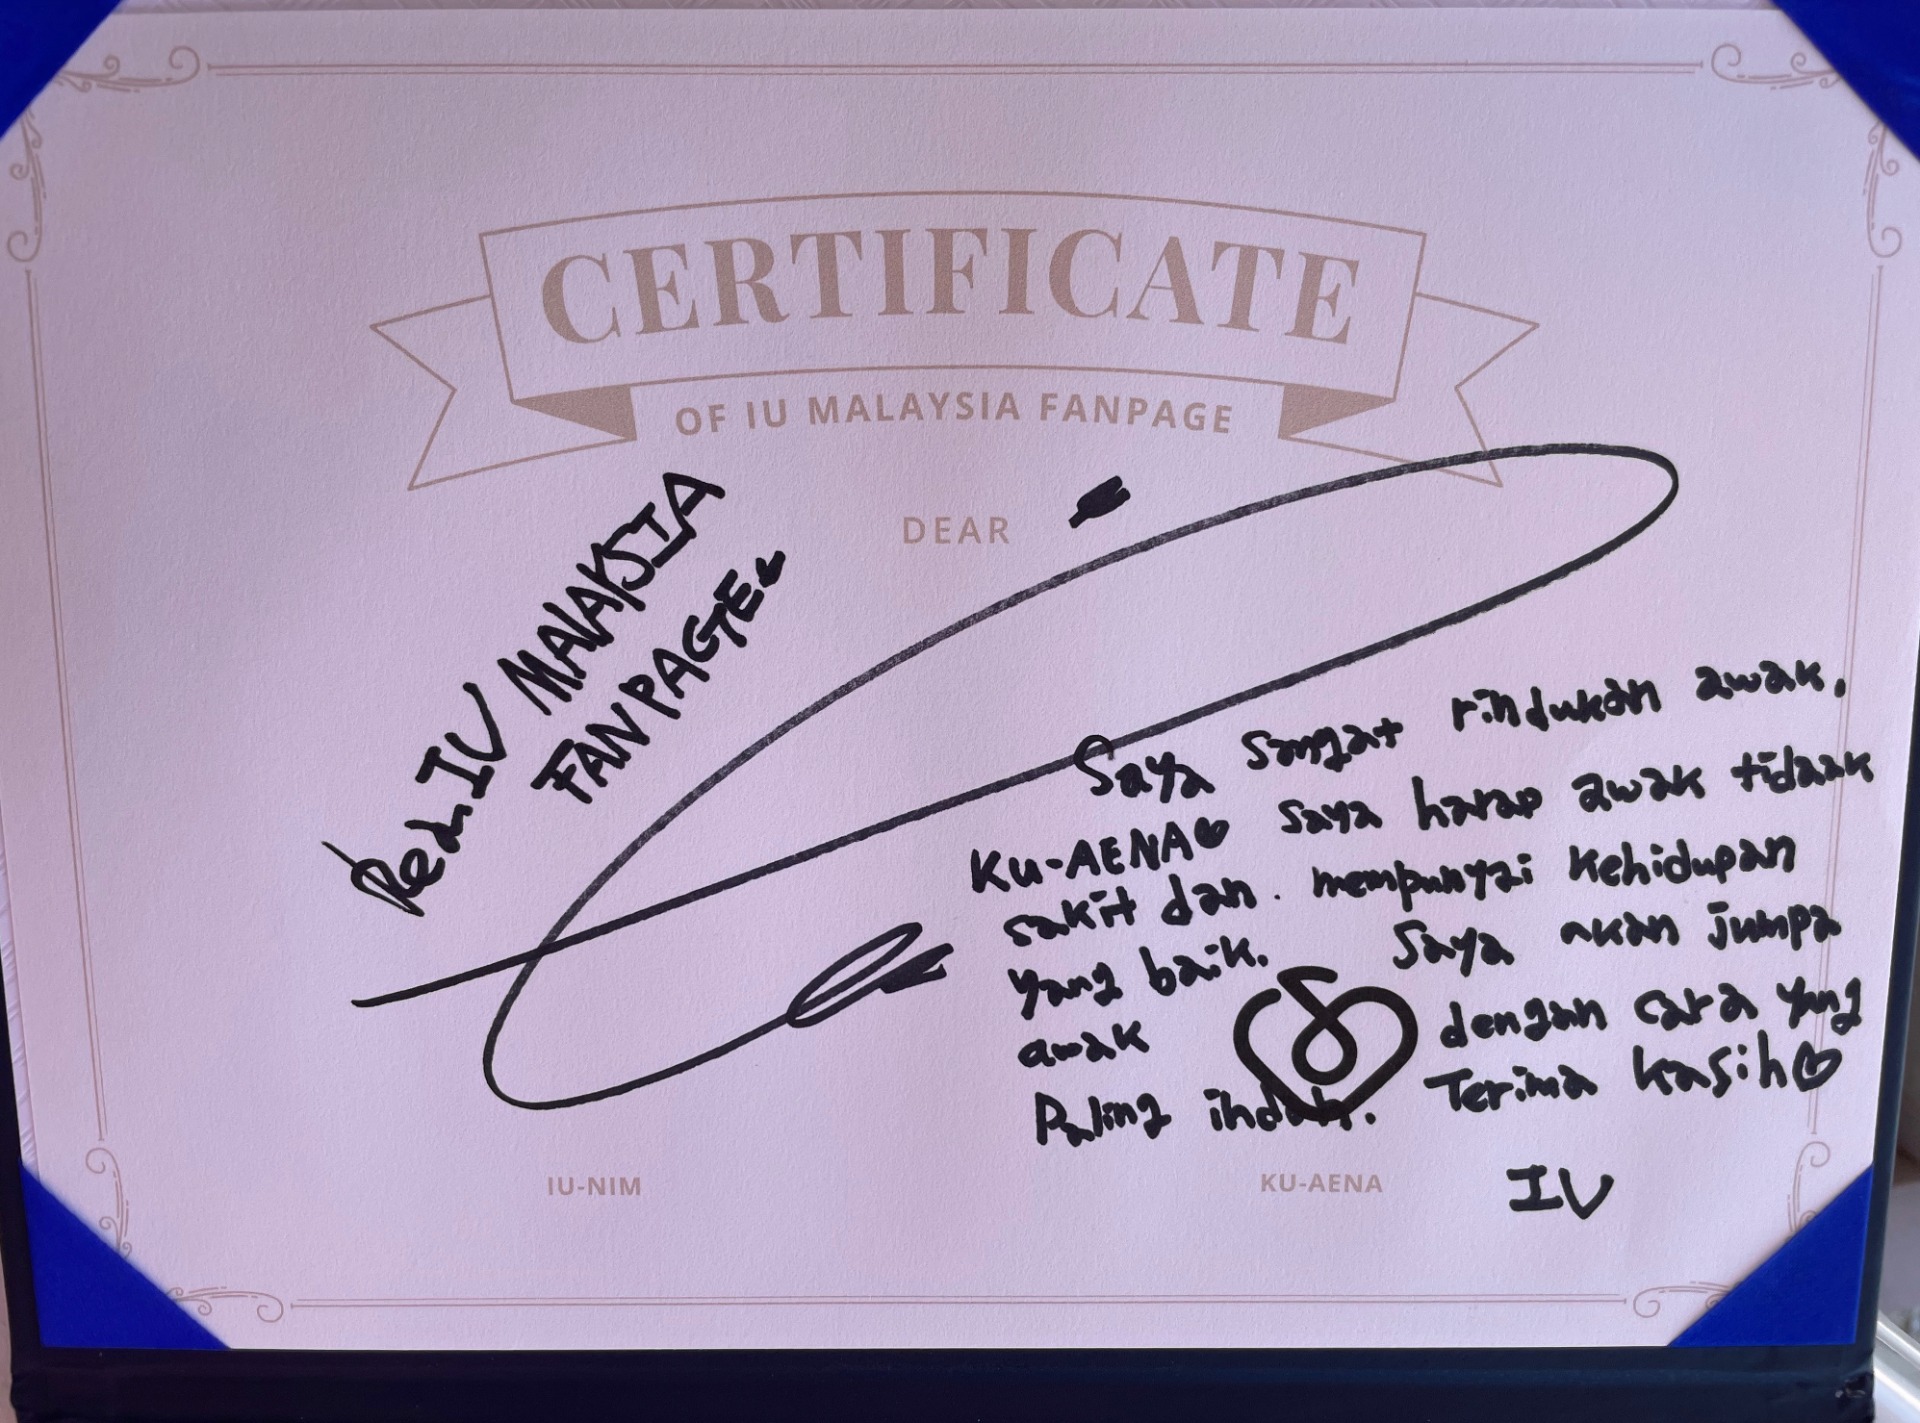 CERTIFICATE
OF IU MALAYSIA FANPAGE
DEAR
IU MALAKSIA
FANPAGE
Saya sangat rindukan awak,
KU-AENA♡ saya harap awak tidaak
sakit dan. mempunyai kehidupan
yang baik. Saya akan jumpa
awak dengan cara yang
Paling indah. Terima kasih♡
IU
IU-NIM
KU-AENA